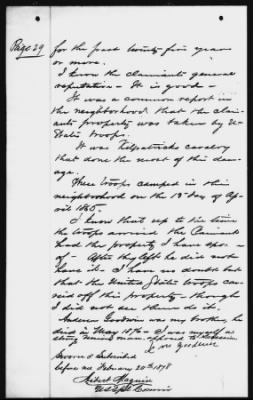 Page 29
for the past twenty five years
or more.
I know the claimants general
reputation - It is good -
It was a common report in
the neighborhood that the claim-
ants property was taken by U-
States troops.
It was Kilpatricks cavalry
that done the most of this dam-
age.
These troops camped in this
neighborhood on the 13 day of Ap-
ril 1865.
I know that up to the time
the troops arrived the Claimant
had the property I have spok-
of - After they left he did not
have it - I have no doubt but
that the United States troops car-
ried off this property - though
I did not see them do it.
Andrew Goodwin was my brother, he
died in May 1876 - I was myself a
strong Union man, opposed to Secession
Goodwin
Sworn & Subscribed
before me February 20th 1878